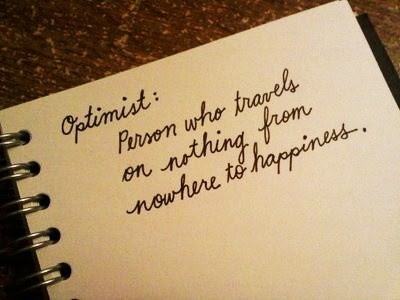 Optimist:
Person who travels
on nothing from
nowhere to happiness.